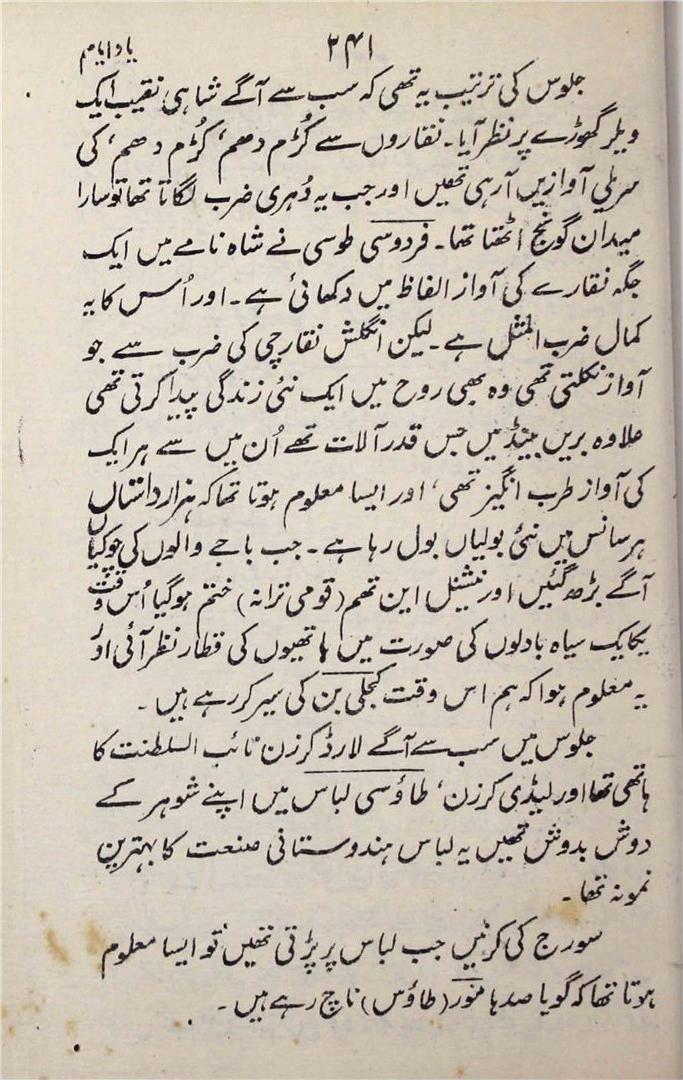 ۲۴۱
یاد ایام
جلوس کی ترتیب یہ تھی کہ سب سے آگے شاہی نقیب ایک
ویلر گھوڑے پر نظر آیا۔ نقاروں سے کُڑم دھم، کُڑم دھم، کی
سریلی آوازیں آرہی تھیں اور جب یہ دُہری ضرب لگاتا تھا تو سارا
میدان گونج اٹھتا تھا۔ فردوسی طوسی نے شاہ نامے میں ایک
جگہ نقارے کی آواز الفاظ میں دکھائی ہے۔ اور اُس کا یہ
کمال ضرب المثل ہے۔ لیکن انگلش نقارچی کی ضرب سے جو
آواز نکلتی تھی وہ بھی روح میں ایک نئی زندگی پیدا کرتی تھی
علاوہ بریں بینڈ میں جس قدر آلات تھے اُن میں سے ہر ایک
کی آواز طرب انگیز تھی، اور ایسا معلوم ہوتا تھا کہ ہزار داستاں
ہر سانس میں نئی بولیاں بول رہا ہے۔ جب باجے والوں کی چوکیاں
آگے بڑھ گئیں اور نیشنل این تھم (قومی ترانہ) ختم ہوگیا اُس وقت
یکایک سیاہ بادلوں کی صورت میں ہاتھیوں کی قطار نظر آئی اور
یہ معلوم ہوا کہ ہم اس وقت کجلی بن کی سیر کر رہے ہیں۔
جلوس میں سب سے آگے لارڈ کرزن نائب السلطنت کا
ہاتھی تھا اور لیڈی کرزن، طاؤسی لباس میں اپنے شوہر کے
دوش بدوش تھیں یہ لباس ہندوستانی صنعت کا بہترین
نمونہ تھا۔
سورج کی کرنیں جب لباس پر پڑتی تھیں تو ایسا معلوم
ہوتا تھا کہ گویا صدہا مور (طاؤس) ناچ رہے ہیں۔